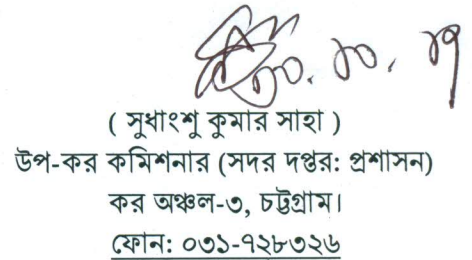 ৩০.১০.১৭
( সুধাংশু কুমার সাহা )
উপ-কর কমিশনার (সদর দপ্তর: প্রশাসন)
কর অঞ্চল-৩, চট্টগ্রাম।
ফোন: ০৩১-৭২৮৩২৬